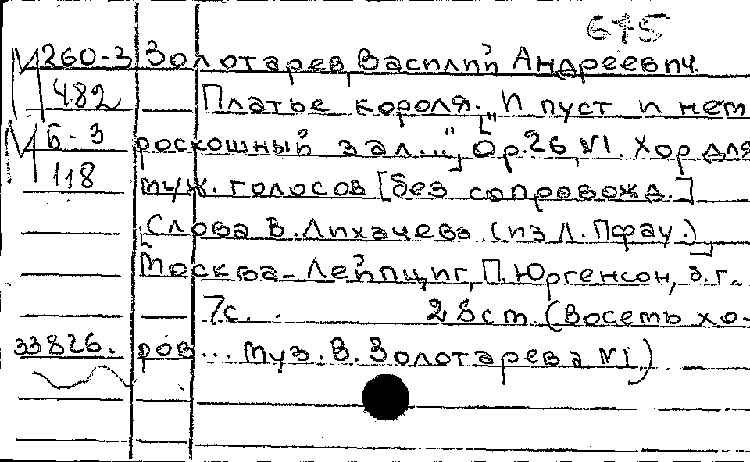 645
М 260-3 Золотарев, Василий Андреевич.
482 Платье короля. „И пуст и нем
М Б-3 роскошный зал..." Ор. 26, №1. Хор для
118 муж. голосов [без сопровожд.]
Слова В. Лихачева (из Л. Пфау.)
Москва-Лейпциг, П. Юргенсон, б.г.
7с. 28 ст. (Восемь хо-
33826. ров... муз. В. Золотарева №1)